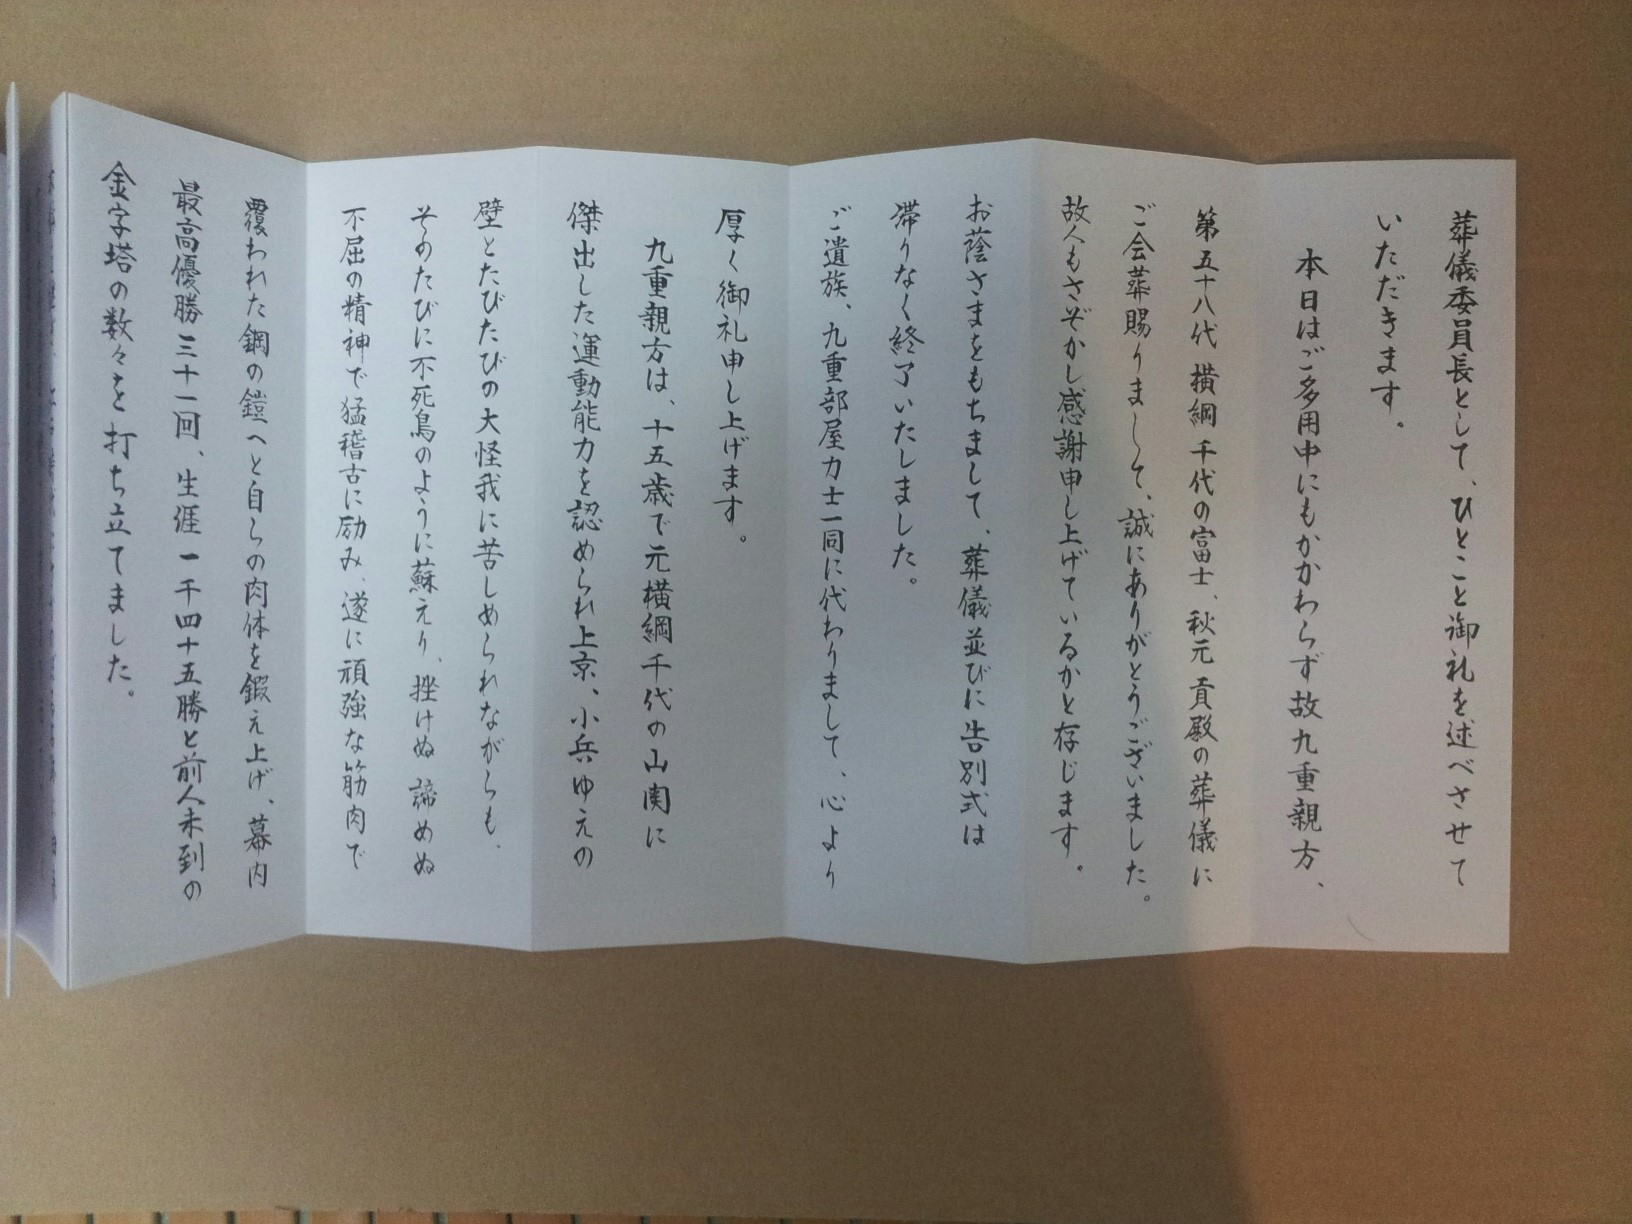 葬儀委員長として、ひとこと御礼を述べさせて
いただきます。
本日はご多用中にもかかわらず故九重親方、
第五十八代 横綱 千代の富士、秋元 貢殿の葬儀に
ご会葬賜りまして、誠にありがとうございました。
故人もさぞかし感謝申し上げているかと存じます。
お蔭さまをもちまして、葬儀並びに告別式は
滞りなく終了いたしました。
ご遺族、九重部屋力士一同に代わりまして、心より
厚く御礼申し上げます。
九重親方は、十五歳で元横綱千代の山関に
傑出した運動能力を認められ上京、小兵ゆえの
壁とたびたびの大怪我に苦しめられながらも、
そのたびに不死鳥のように蘇えり、挫けぬ 諦めぬ
不屈の精神で猛稽古に励み、遂に頑強な筋肉で
覆われた鋼の鎧へと自らの肉体を鍛え上げ、幕内
最高優勝三十一回、生涯一千四十五勝と前人未到の
金字塔の数々を打ち立てました。